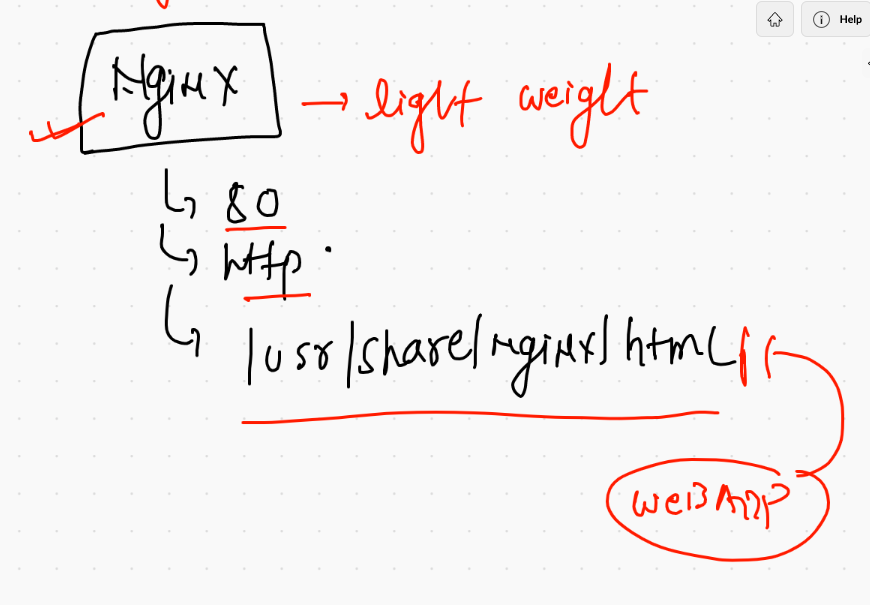 Help
Nginx → light weight
80
http
/usr/share/nginx/html
WEB APP